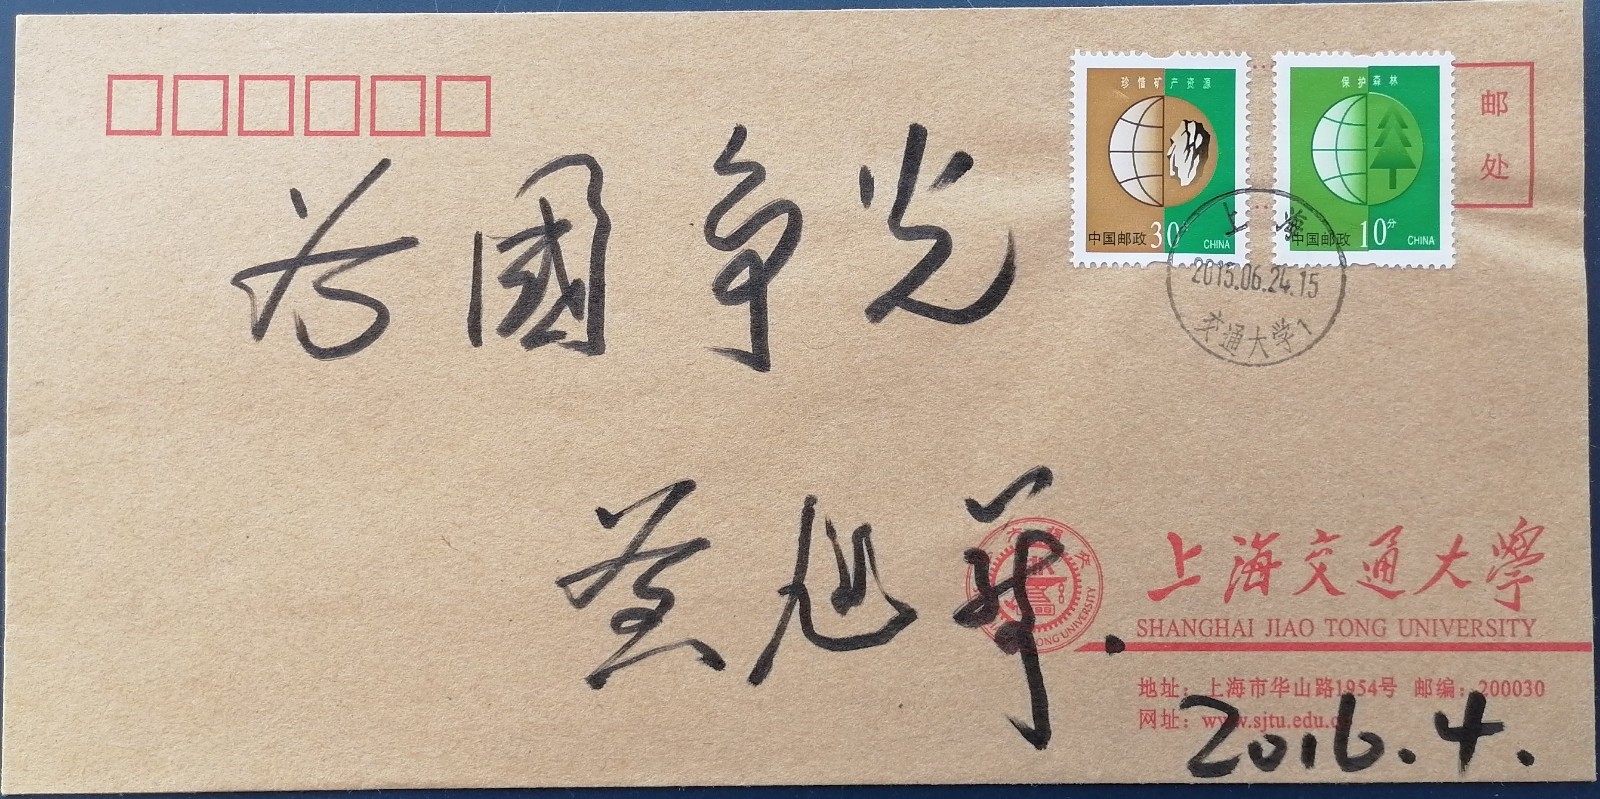 珍惜矿产资源
中国邮政 30 CHINA
保护森林
中国邮政 10分 CHINA
邮
处
上海
2015.06.24.15
交通大学1
为國争光
黄旭华.
2016.4.
上海交通大學
SHANGHAI JIAO TONG UNIVERSITY
地址：上海市华山路1954号 邮编：200030
网址：www.sjtu.edu.c